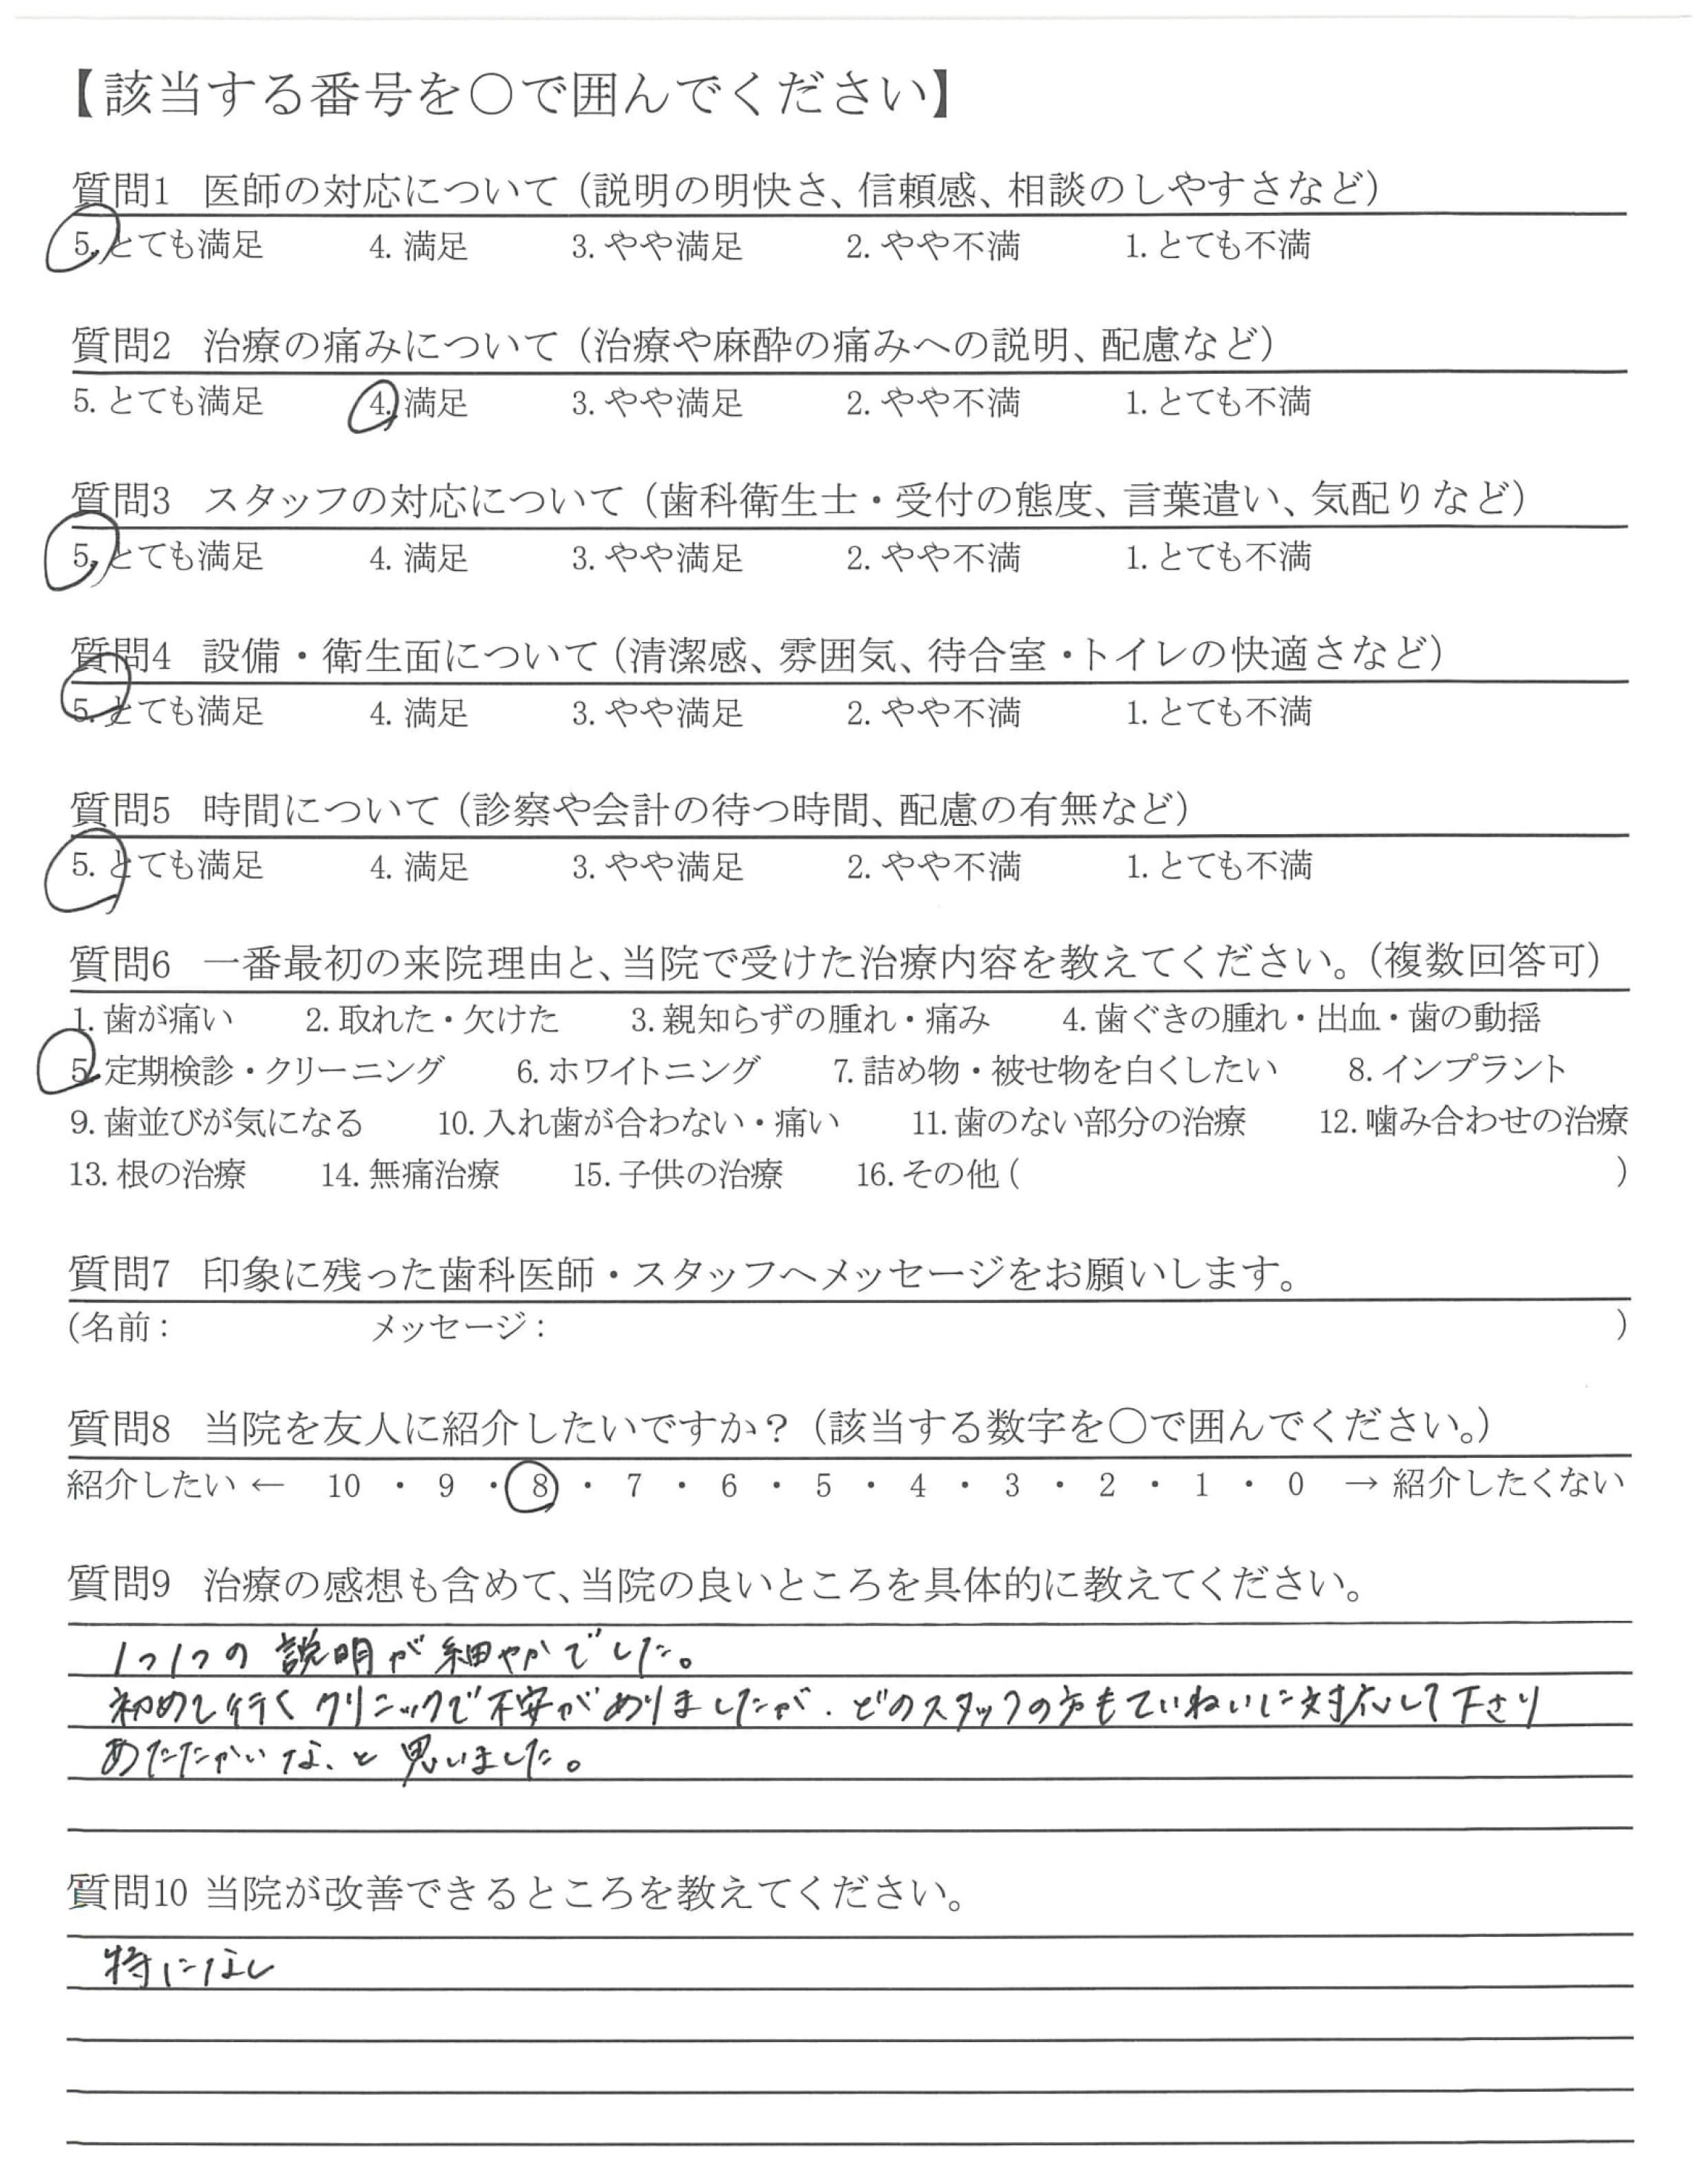 【該当する番号を○で囲んでください】
質問1 医師の対応について（説明の明快さ、信頼感、相談のしやすさなど）
5. とても満足 4. 満足 3. やや満足 2. やや不満 1. とても不満
質問2 治療の痛みについて（治療や麻酔の痛みへの説明、配慮など）
5. とても満足 4. 満足 3. やや満足 2. やや不満 1. とても不満
質問3 スタッフの対応について（歯科衛生士・受付の態度、言葉遣い、気配りなど）
5. とても満足 4. 満足 3. やや満足 2. やや不満 1. とても不満
質問4 設備・衛生面について（清潔感、雰囲気、待合室・トイレの快適さなど）
5. とても満足 4. 満足 3. やや満足 2. やや不満 1. とても不満
質問5 時間について（診察や会計の待つ時間、配慮の有無など）
5. とても満足 4. 満足 3. やや満足 2. やや不満 1. とても不満
質問6 一番最初の来院理由と、当院で受けた治療内容を教えてください。（複数回答可）
1. 歯が痛い 2. 取れた・欠けた 3. 親知らずの腫れ・痛み 4. 歯ぐきの腫れ・出血・歯の動揺
5. 定期検診・クリーニング 6. ホワイトニング 7. 詰め物・被せ物を白くしたい 8. インプラント
9. 歯並びが気になる 10. 入れ歯が合わない・痛い 11. 歯のない部分の治療 12. 噛み合わせの治療
13. 根の治療 14. 無痛治療 15. 子供の治療 16. その他（ ）
質問7 印象に残った歯科医師・スタッフへメッセージをお願いします。
（名前： メッセージ： ）
質問8 当院を友人に紹介したいですか？（該当する数字を○で囲んでください。）
紹介したい ← 10 ・ 9 ・ 8 ・ 7 ・ 6 ・ 5 ・ 4 ・ 3 ・ 2 ・ 1 ・ 0 → 紹介したくない
質問9 治療の感想も含めて、当院の良いところを具体的に教えてください。
1つ1つの説明が細やかでした。
初めて行くクリニックで不安がありましたが、どのスタッフの方もていねいに対応して下さり
あたたかいな、と思いました。
質問10 当院が改善できるところを教えてください。
特になし